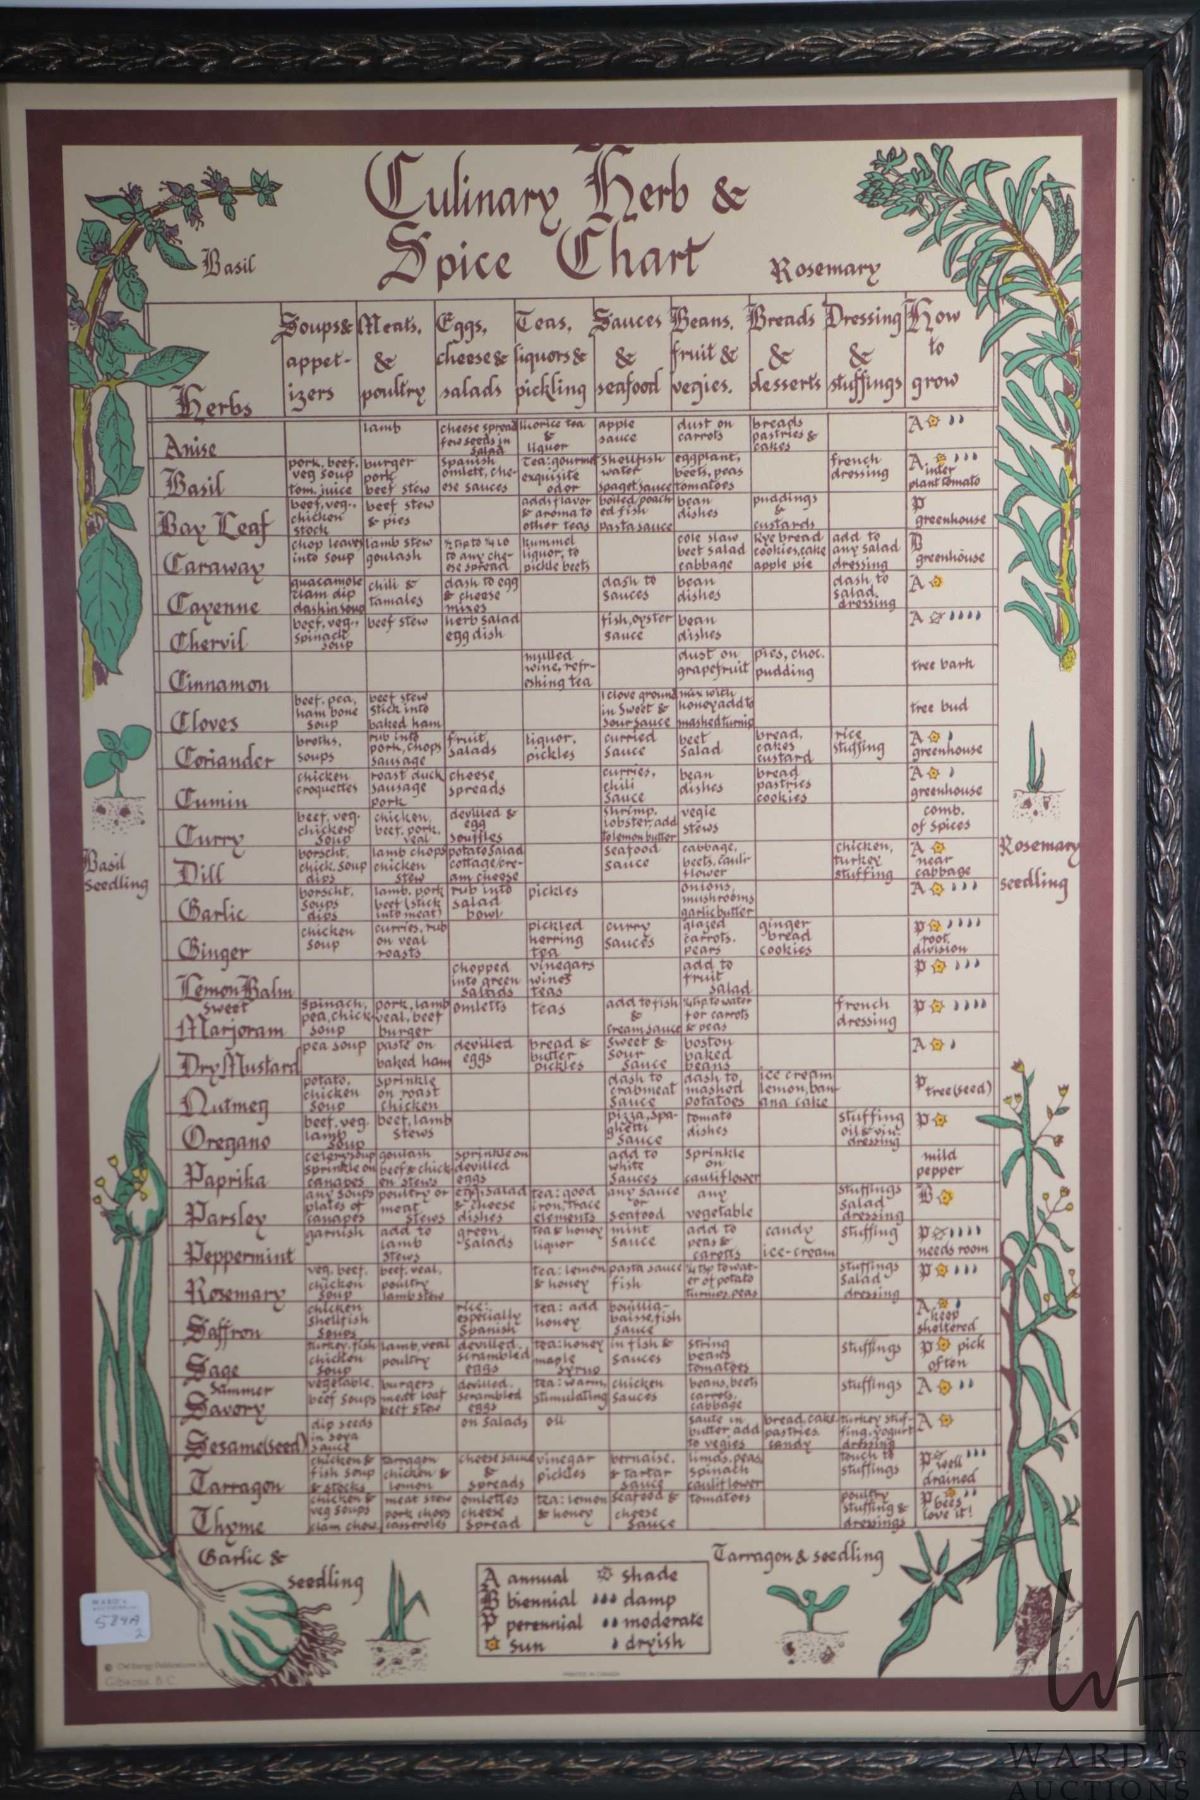 Culinary Herb &
Spice Chart
Basil
Rosemary
Herbs
Soups & appet-izers
Meats, & poultry
Eggs, cheese & salads
Teas, liquors & pickling
Sauces & seafood
Beans, fruit & vegies.
Breads & desserts
Dressing & stuffings
How to grow
Anise
lamb
cheese spread few seeds in salad
licorice tea & liquor
apple sauce
dust on carrots
breads pastries & cakes
A
Basil
pork, beef, veg soup tom. juice
burger pork beef stew
Spanish omlett, che-ese sauces
Tea: gourmet exquisite odor
shellfish water spaget. sauce
eggplant, beets, peas tomatoes
french dressing
A inter plant tomato
Bay Leaf
beef, veg., chicken stock
beef stew & pies
add flavor & aroma to other teas
boiled/poach ed fish pasta sauce
bean dishes
puddings & custards
P greenhouse
Caraway
chop leaves into soup
lamb stew goulash
to any che-ese spread
kummel liquor, to pickle beets
cole slaw beet salad cabbage
Rye bread cookies, cake apple pie
add to any salad dressing
B greenhouse
Cayenne
guacamole clam dip dash in soup
chili & tamales
dash to egg & cheese mixes
dash to sauces
bean dishes
dash to salad dressing
A
Chervil
beef, veg., spinach soup
beef stew
herb salad egg dish
fish, oyster sauce
bean dishes
A
Cinnamon
mulled wine, refr-eshing tea
dust on grapefruit
pies, choc. pudding
tree bark
Cloves
beef, pea, ham bone soup
beef stew stick into baked ham
1 clove ground in sweet & sour sauce
mix with honey add to mashed turnip
tree bud
Coriander
broths, soups
rub into pork, chops sausage
fruit, salads
liquor, pickles
curried sauce
beet salad
bread, cakes custard
rice stuffing
A greenhouse
Cumin
chicken croquettes
roast duck sausage pork
cheese spreads
curries, chili sauce
bean dishes
bread pastries cookies
A greenhouse
Curry
beef, veg. chicken soup
chicken, beef, pork, veal
devilled & egg souffles
shrimp, lobster, add to lemon butter
vegie stews
comb. of spices
Dill
borscht, chick. soup dips
lamb chops chicken stew
potato salad cottage/cre-am cheese
seafood sauce
cabbage, beets, cauli-flower
chicken, turkey stuffing
A near cabbage
Garlic
borscht, soups dips
lamb, pork beef (stick into meat)
rub into salad bowl
pickles
onions, mushrooms garlic butter
A
Ginger
chicken soup
curries, rub on veal roasts
pickled herring tea
curry sauces
glazed carrots, pears
ginger bread cookies
P root division
Lemon Balm
chopped into green salads
vinegars wines teas
add to fruit salad
P
Sweet Marjoram
spinach, pea, chick soup
pork, lamb veal, beef burger
omletts
teas
add to fish & cream sauce
to water for carrots & peas
french dressing
P
Dry Mustard
pea soup
paste on baked ham
devilled eggs
bread & butter pickles
sweet & sour sauce
boston baked beans
A
Nutmeg
potato, chicken soup
sprinkle on roast chicken
dash to crabmeat sauce
dash to mashed potatoes
ice cream lemon, ban ana cake
P tree (seed)
Oregano
beef, veg. lamb soup
beef, lamb stews
pizza, spa-ghetti sauce
tomato dishes
stuffing oil & vin. dressing
P
Paprika
celery soup sprinkle on canapes
goulash beef & chick en stews
sprinkle on devilled eggs
add to white sauces
sprinkle on cauliflower
mild pepper
Parsley
any soups plates of canapes
poultry or meat stews
egg, salad & cheese dishes
tea: good iron, trace elements
any sauce or seafood
any vegetable
stuffings salad dressing
B
Peppermint
garnish
add to lamb stews
green salads
tea & honey liquor
mint sauce
add to peas & carrots
candy ice-cream
stuffing
P needs room
Rosemary
veg. beef, chicken soup
beef, veal, poultry lamb stew
tea: lemon & honey
pasta sauce fish
to wat-er of potato turnips, peas
stuffings salad dressing
P
Saffron
chicken shellfish soups
rice: especially Spanish
tea: add honey
bouilla-baisse, fish sauce
A keep sheltered
Sage
turkey, fish chicken soup
lamb, veal poultry
devilled, scrambled eggs
tea: honey maple syrup
in fish & sauces
string beans tomatoes
stuffings
P pick often
Summer Savory
vegetable, beef soups
burgers meat loaf beef stew
devilled, scrambled eggs
tea: warm, stimulating
chicken sauces
beans, beets carrots, cabbage
stuffings
A
Sesame (seed)
dip seeds in soya sauce
on salads
oil
saute in butter, add to vegies
bread, cake pastries, candy
turkey stuf-fing, yogurt dressing
A
Tarragon
chicken & fish soup & stocks
tarragon chicken & lemon
cheese sauce & spreads
vinegar pickles
bernaise, & tartar sauce
limas, peas, spinach cauliflower
touch to stuffings
P well drained
Thyme
chicken & veg soups clam chow.
meat stew pork chops casseroles
omlettes cheese spread
tea: lemon & honey
seafood & cheese sauce
tomatoes
poultry stuffing & dressings
P bees love it!
Basil seedling
Rosemary seedling
Garlic & seedling
Tarragon & seedling
A annual
shade
B biennial
damp
P perennial
moderate
Sun
dryish
WARD'S
589A
2
Gibsons, B.C.
PRINTED IN CANADA
WA
WARD's
AUCTIONS